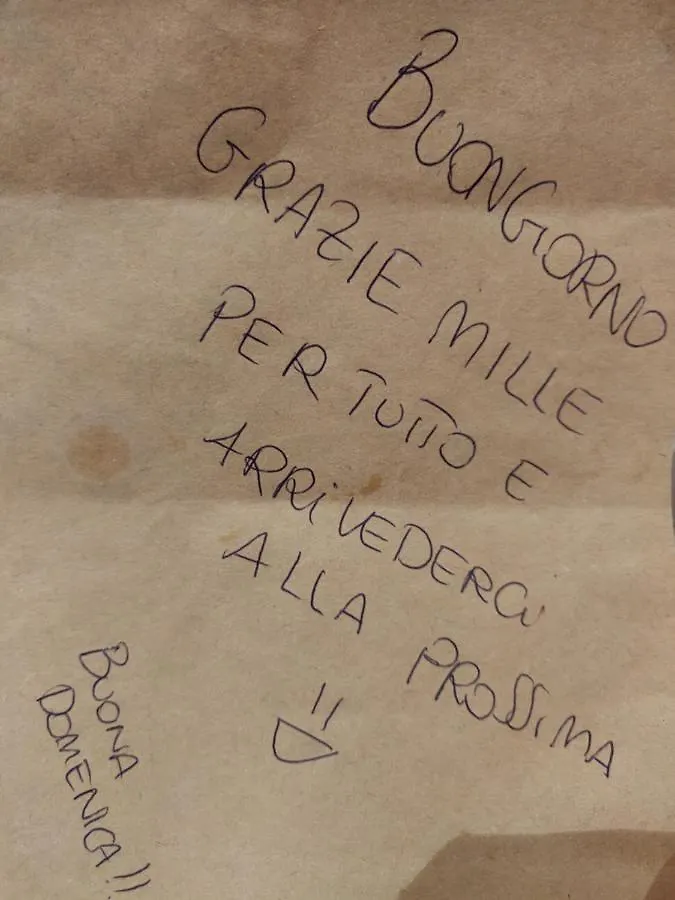 BUONGIORNO
GRAZIE MILLE
PER TUTTO E
ARRIVEDERCI
ALLA PROSSIMA
BUONA
DOMENICA!!